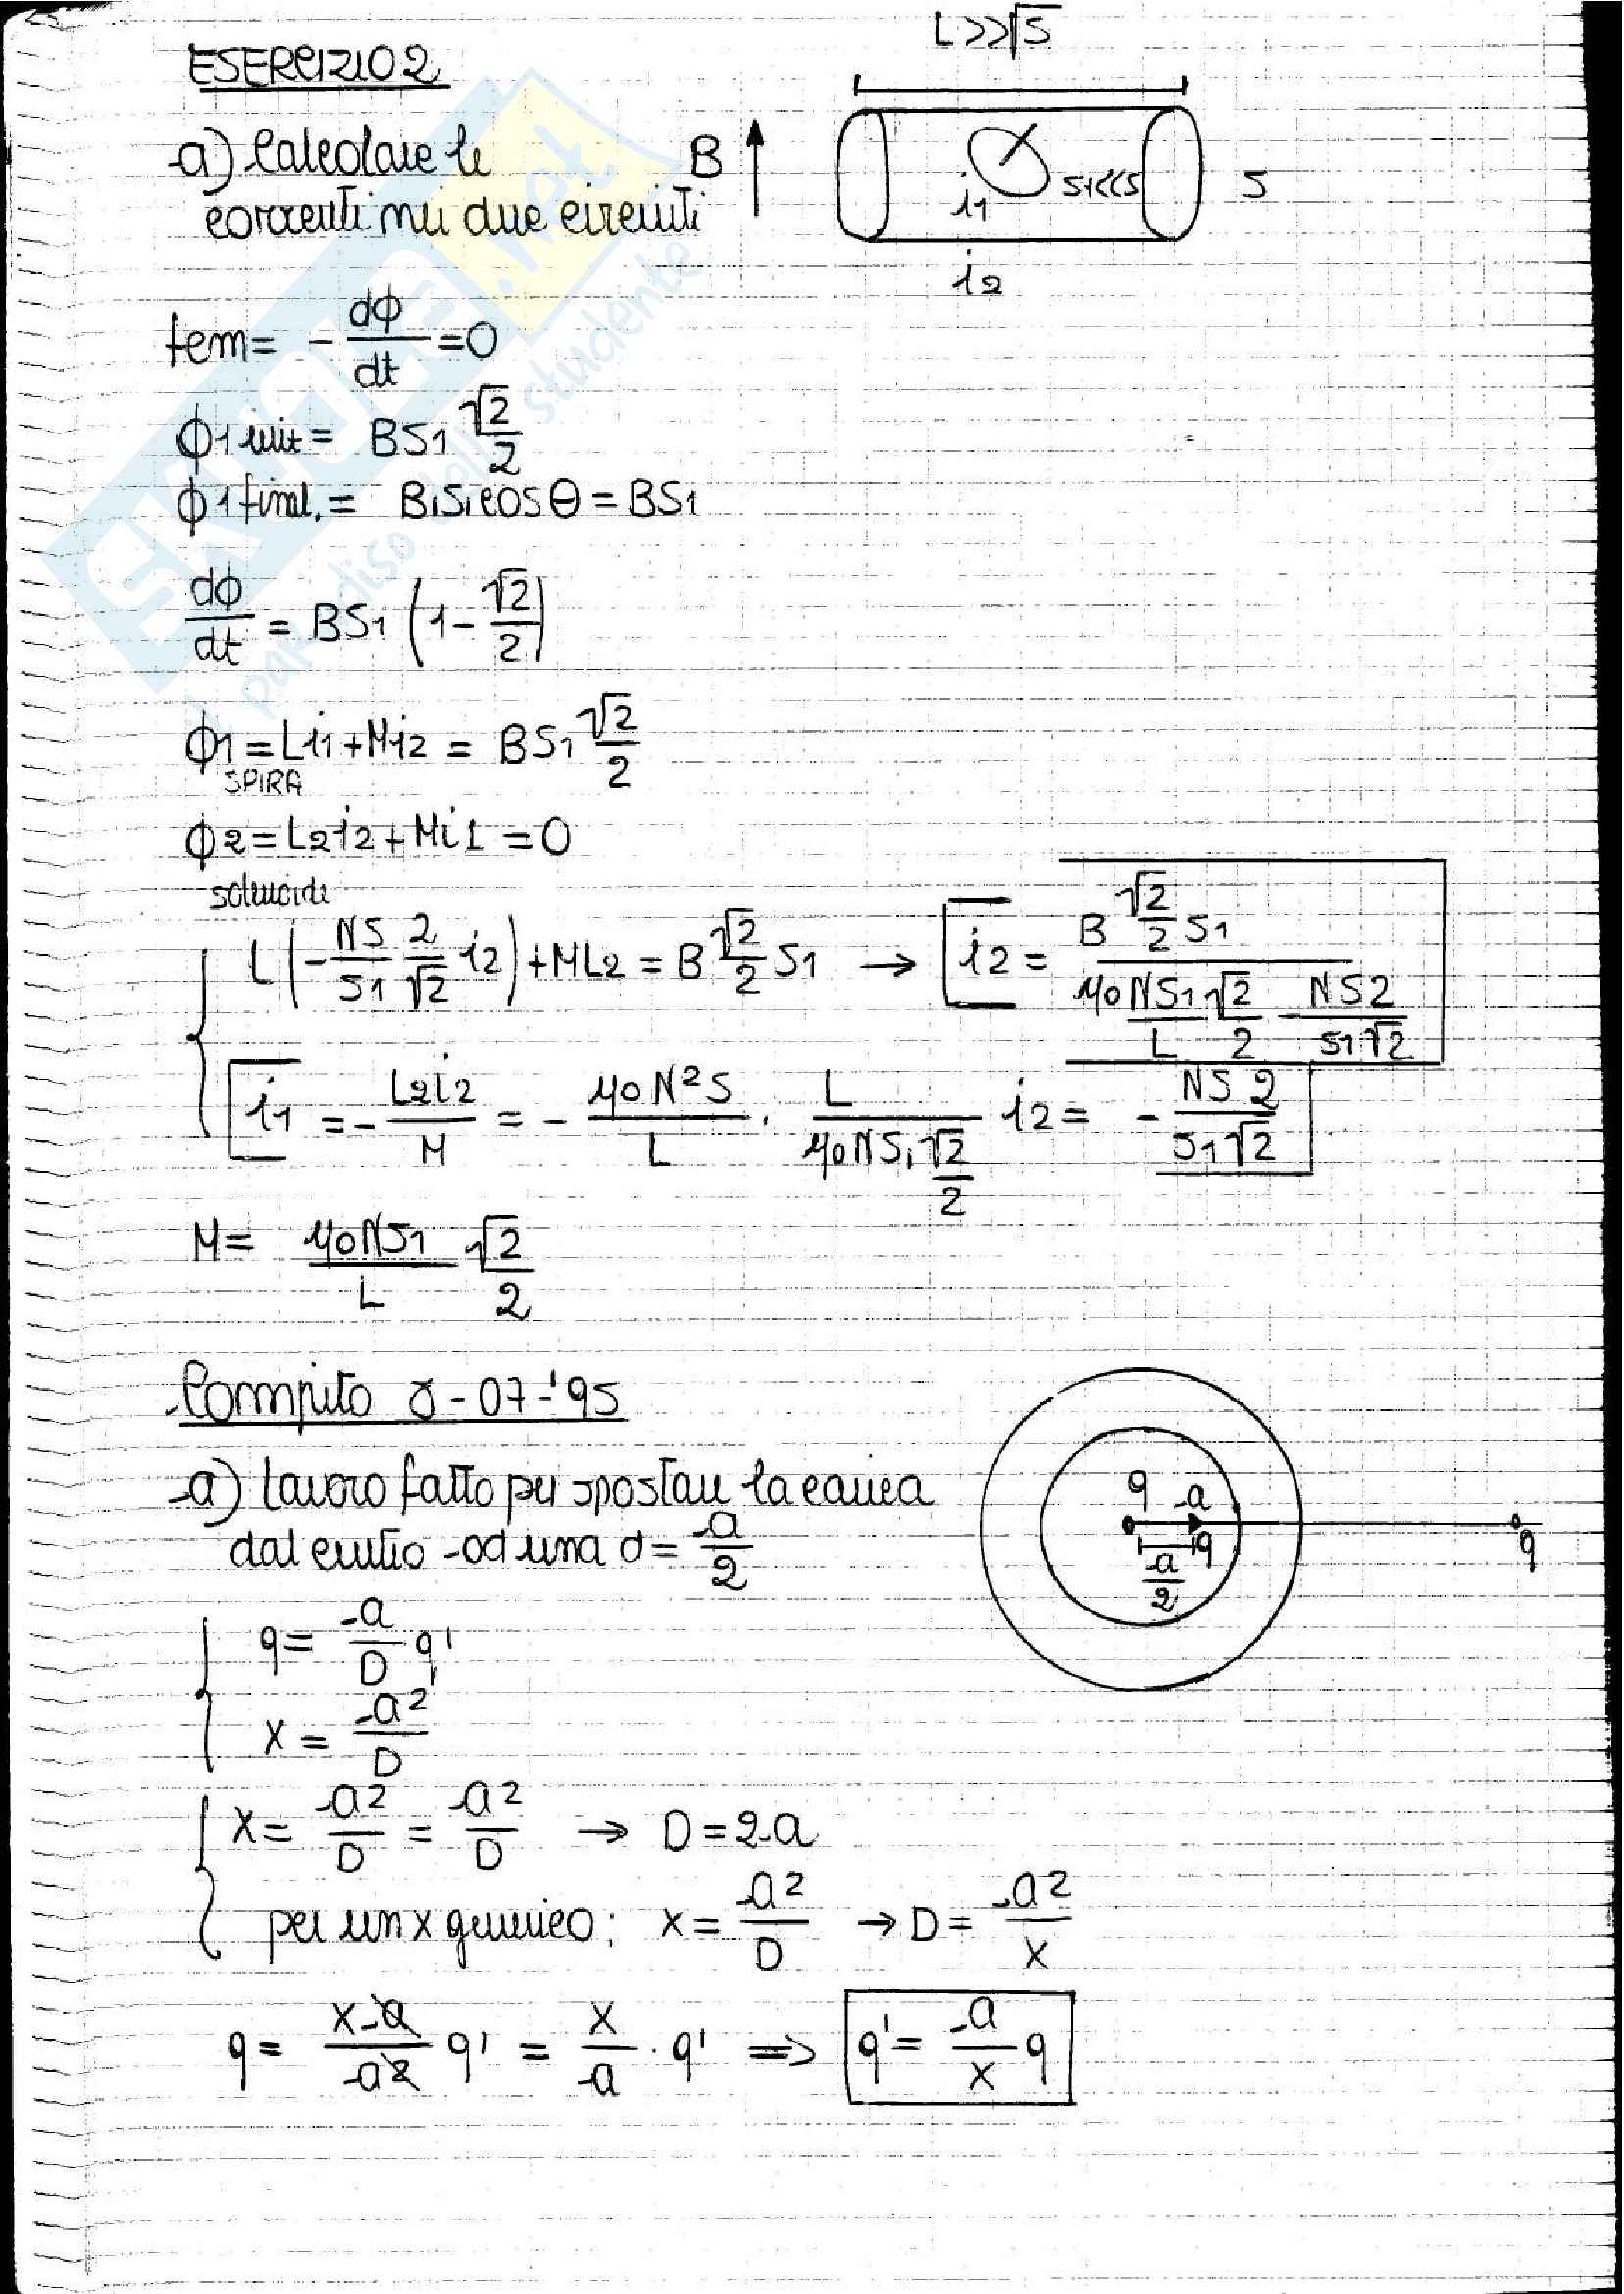 L>>√S
ESERCIZIO 2
a) Calcolare le
correnti nei due circuiti
B
i1
S1<<S
S
i2
fem = - dϕ/dt = 0
ϕ1 init = BS1 √2/2
ϕ1 final. = B1S1cosθ = BS1
dϕ/dt = BS1 (1 - √2/2)
ϕ1 = Li1 + Mi2 = BS1 √2/2
SPIRA
ϕ2 = L2i2 + Mi1 = 0
solenoide
L(- NS/S1 2/√2 i2) + ML2 = B √2/2 S1 → i2 = B √2/2 S1 / μ0NS1/L √2/2 - NS2/S1√2
i1 = - L2i2/M = - μ0N²S/L · L/μ0NS1 √2/2 i2 = - NS2/S1√2
M = μ0NS1/L √2/2
Compito 8-07-'95
a) Lavoro fatto per spostare la carica
dal centro ad una d = a/2
q a
q
a/2
q
q = a/D q'
x = a²/D
x = a²/D = a²/D → D = 2a
per un x generico: x = a²/D → D = a²/x
q = xa/a2 q' = x/a · q' => q' = a/x q
SKUOLA.net
il paradiso dello studente